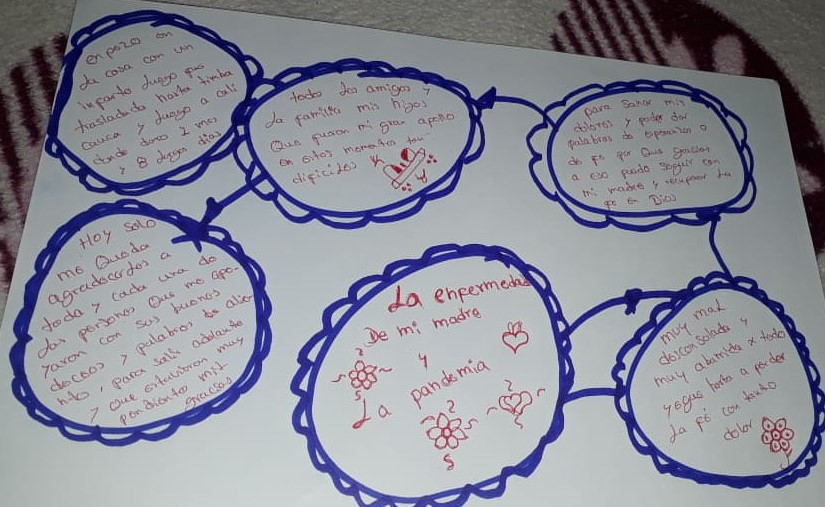 empezo en
la casa con un
infarto luego fue
trasladada hasta timba
cauca y luego a cali
donde duro 1 mes
y 8 largos dias
todo los amigos y
la familia mis hijos
Que fueron mi gran apollo
en estos momentos tan
dificiles
para sanar mis
dolores y poder dar
palabras de esperanza o
de fe por que gracias
a eso puedo seguir con
mi madre y recuperar la
fe en Dios
Hoy solo
me Queda
agradecerles a
toda y cada una de
las personas Que me apo-
yaron con sus buenos
deceos y palabras de alie-
nto, para salir adelante
y que estuvieron muy
pendiente mil
gracias
La enfermedad
De mi madre
y
La pandemia
muy mal
desconsolada y
muy aburrida x todo
llegue hasta a perder
La fé con tanto
dolor